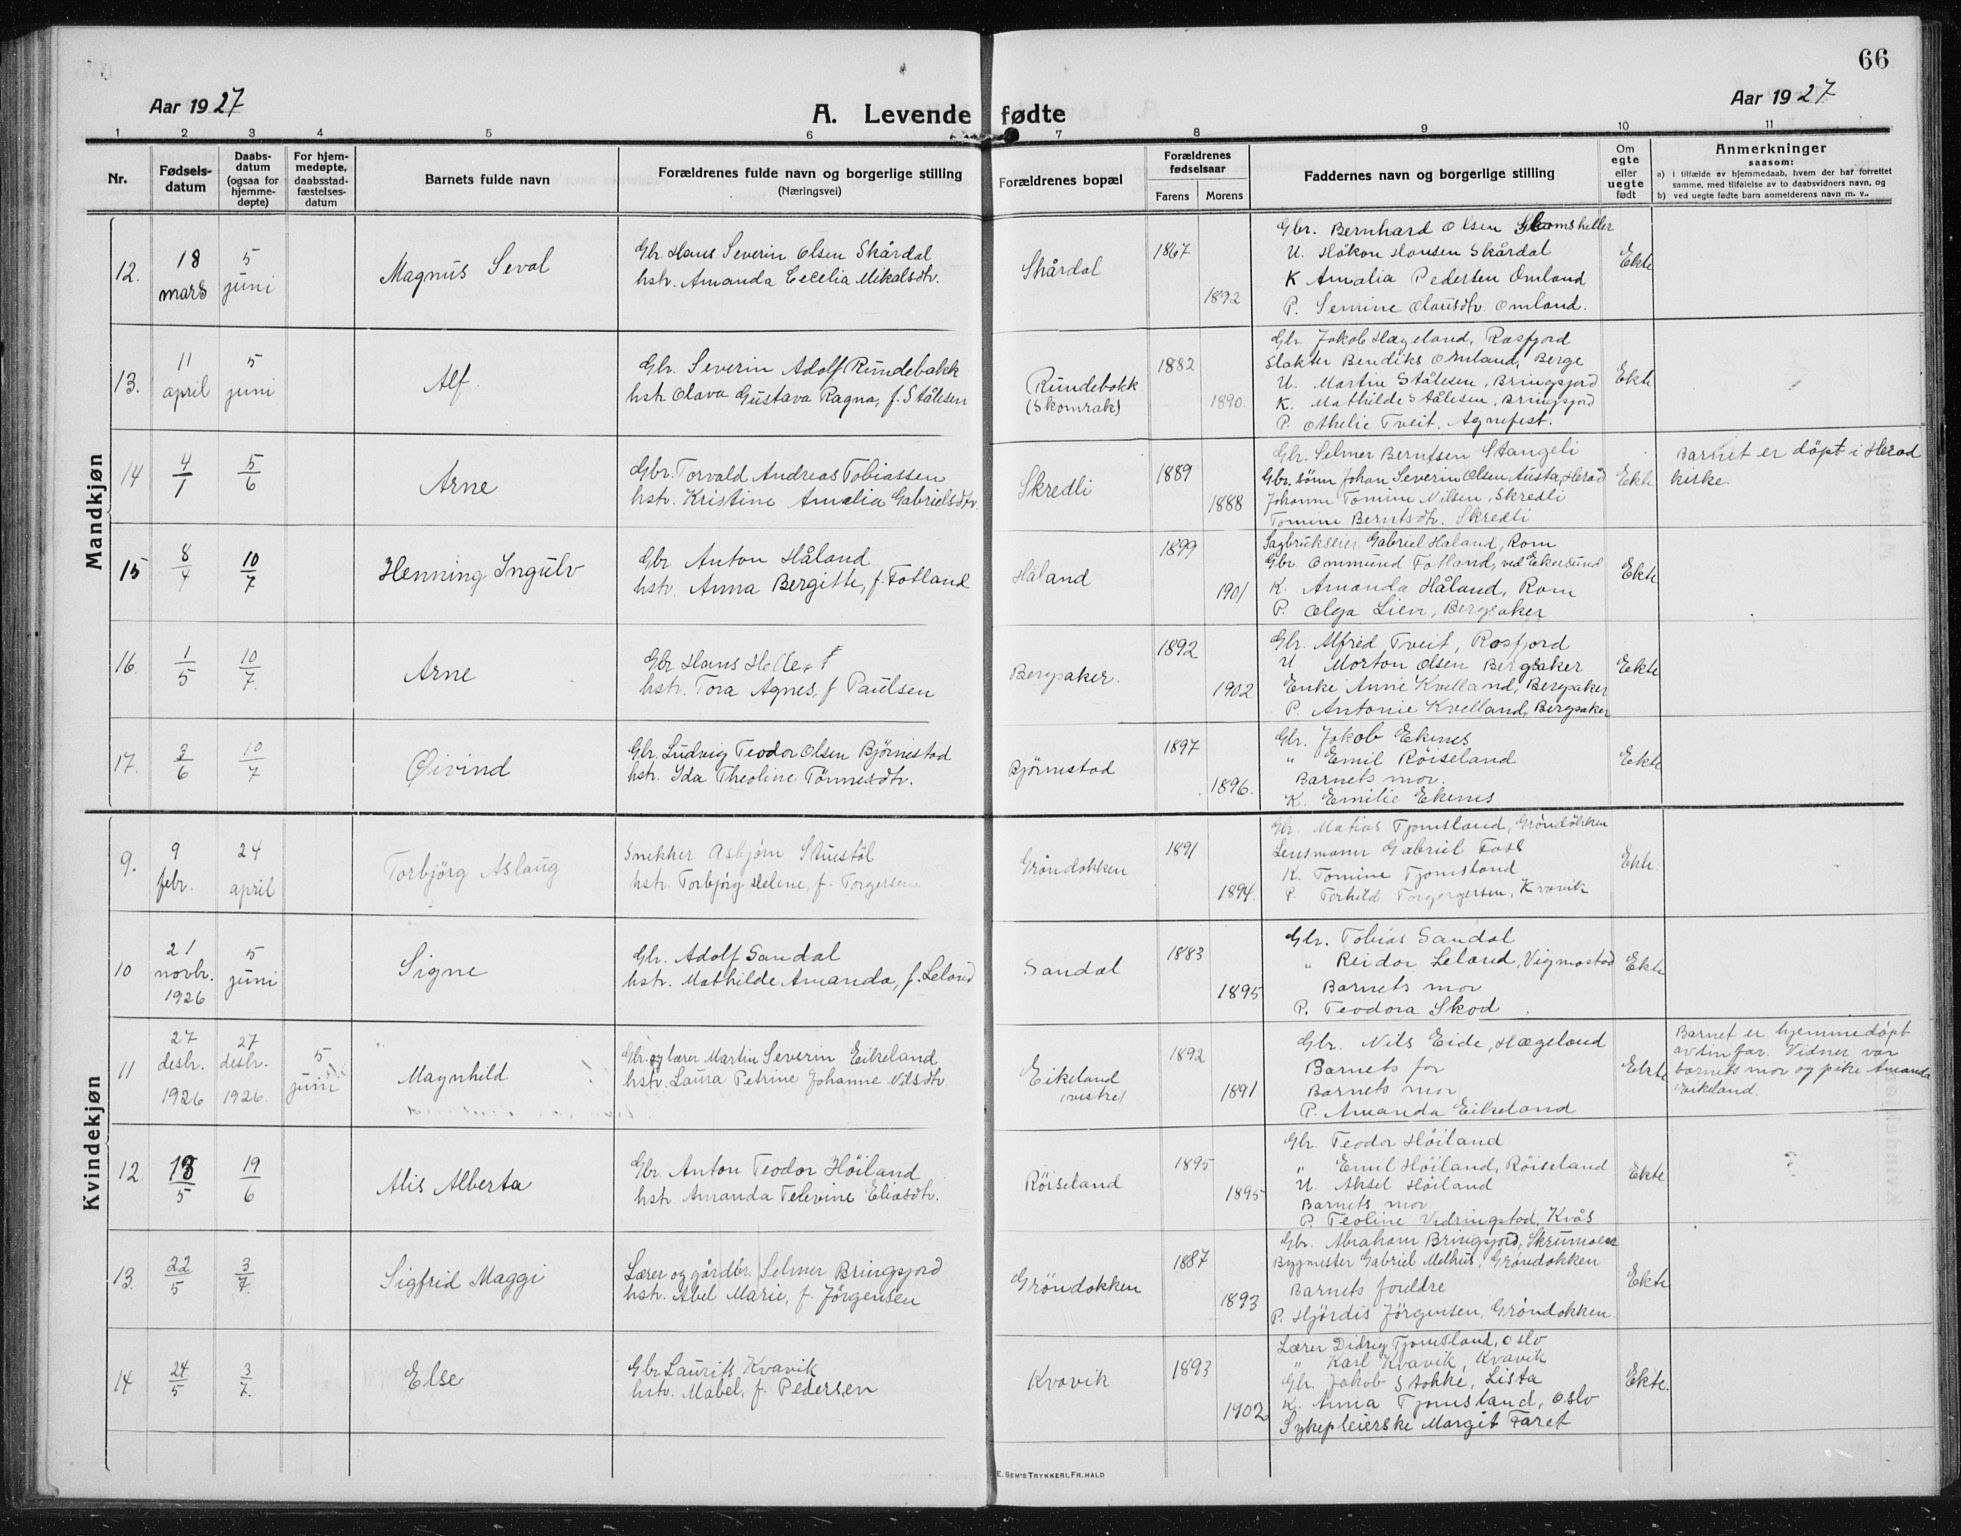 66
Aar 1927
A. Levende fødte
Aar 1927
1 2 3 4 5 6 7 8 9 10 11
Nr.
Fødsels-
datum
Daabs-
datum
(ogsaa for
hjemme-
døpte)
For hjem-
medøpte,
daabsstad-
fæstelses-
datum
Barnets fulde navn
Forældrenes fulde navn og borgerlige stilling
(Næringsvei)
Forældrenes bopæl
Forældrenes
fødselsaar
Farens Morens
Faddernes navn og borgerlige stilling
Om
egte
eller
uegte
født
Anmerkninger
saasom:
a) i tilfælde av hjemmedaab, hvem der har forrettet
samme, med tilføielse av to daabsvidners navn, og
b) ved uegte fødte barn anmelderens navn m. v..
Mandkjøn
12. 18 mars 5 juni
Magnus Seval
Gbr. Hans Severin Olsen Skårdal
hstr. Amanda Cecelia Mikalsdtr.
Skårdal
1867
1892
Gbr. Bernhard Olsen
U. Håkon Hansen Skårdal
K Amalia Pedersen Omland
P. Semine Olausdtr. Omland.
Ekte
13. 11 april 5 juni
Alf.
Gbr. Severin Adolf Rundebakk
hstr Olava Gustava Ragna, f. Stålesen
Rundebakk
(Skomrak)
1882
1890.
Gbr. Jakob Hægeland, Rosfjord
Slakter Bendiks Omland, Berge
U. Martin Stålesen, Bringsjord
K. Mathilde Stålesen, Bringsjord
P. Othelie Tveit, Agnefest.
Ekte
14 4/1 5/6
Arne
Gbr. Torvald Andreas Tobiassen
hstr. Kristine Amalia Gabrielsdtr.
Skredli
1889
1888
Gbr. Selmer Berntsen Stangeli
Gbr. sønn Johan Severin Olsen Austa, Herad
Johanne Tomine Nilsen, Skredli
Tomine Berntsdtr. Skredli
Ekte
Barnet er döpt i Herad
kirke.
15 8/4 10/7
Henning Ingulv
Gbr Anton Håland
hstr. Anna Bergitte, f. Fotland
Håland
1899
1901
Sagbrukseier Gabriel Håland, Rom
Gbr. Ommund Fotland, ved Ekersund
K. Amanda Håland, Rom
P. Olga Lien, Bergsaker
Ekte
16. 1/5 10/7.
Arne
Gbr Hans
hstr. Tora Agnes, f Paulsen
Bergsaker.
1892
1902
Gbr. Alfred Tveit, Rosfjord
U Morton Olsen Bergsaker
Enke Anne Kvelland, Bergsaker
P. Antonie Kvelland, Bergsaker
Ekte
17. 3/6 10/7
Øivind
Gbr. Ludvig Teodor Olsen Bjørnestad
hstr. Ida Theoline Tönnesdtr.
Bjørnestad
1897
1896.
Gbr. Jakob Ekenes
„ Emil Röiseland
Barnets mor.
K. Emilie Ekenes
Ekte
Kvindekjøn
9. 9 febr. 24 april
Torbjörg Aslaug
Snekker Asbjørn Stuestöl
hstr. Torbjørg Helene, f. Torgersen
Gröndokken
1891
1894.
Gbr. Matias Tjomsland, Gröndokken
Lensmann Gabriel Foss
K. Tomine Tjomsland
P. Torhild Torgergersen, Kvavik
Ekte.
10 21 novbr. 1926 5 juni
Signe
Gbr. Adolf Sandal
hstr. Mathilde Amanda, f. Leland
Sandal
1883
1895
Gbr. Tobias Sandal
„ Reidar Leland, Vigmostad
Barnets mor
P. Teodora Skod.
Ekte
11 27 desbr. 1926 27 desbr. 1926. 5 juni
Magnhild
Gbr. og lærer Martin Severin Eikeland
hstr. Laura Petrine Johanne Nilsdtr
Eikeland
(vestre)
1892
1891
Gbr. Nils Eide, Hægeland
Barnets far
Barnets mor
P. Amanda Eikeland
Ekte
Barnet er hjemmedöpt
av sin far. Vidner var
barnets mor og pike Amanda
Eikeland.
12 13/5 19/6
Alis Alberta
Gbr. Anton Teodor Höiland
hstr. Amanda Televine Eliasdtr.
Röiseland
1895
1895
Gbr Teodor Höiland
„ Emil Höiland, Röiseland
U. Aksel Höiland
Barnets mor
P. Teoline Vidringstad, Kvås
Ekte
13. 22/5 3/7.
Sigfrid Maggi
Lærer og gårdbr. Selmer Bringsjord
hstr. Abel Marie, f. Jörgensen
Gröndokken
1887
1893
Gbr. Abraham Bringsjord,
Bygmester Gabriel Melhus, Gröndokken
Barnets foreldre
P. Hjördis Jörgensen, Gröndokken
Ekte
14 24/5 3/7.
Else
Gbr Laurits Kvavik
hstr. Mabel, f. Pedersen
Kvavik
1893
1902
Lærer Didrig Tjomsland, Oslo
„ Karl Kvavik, Kvavik
Gbr. Jakob Stokke, Lista
K. Anna Tjomsland, Oslo
Sykepleierske Margit Faret
Ekte.
E. SEM'S TRYKKERI, FR.HALD